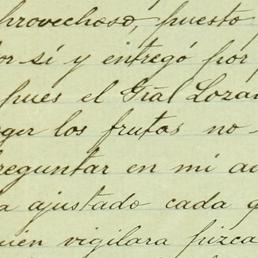 provechoso, puesto
por sí y entregó por
pues el Gral Lozan
ger los frutos no
reguntar en mi a
a ajustado cada
uien vigilara pizca